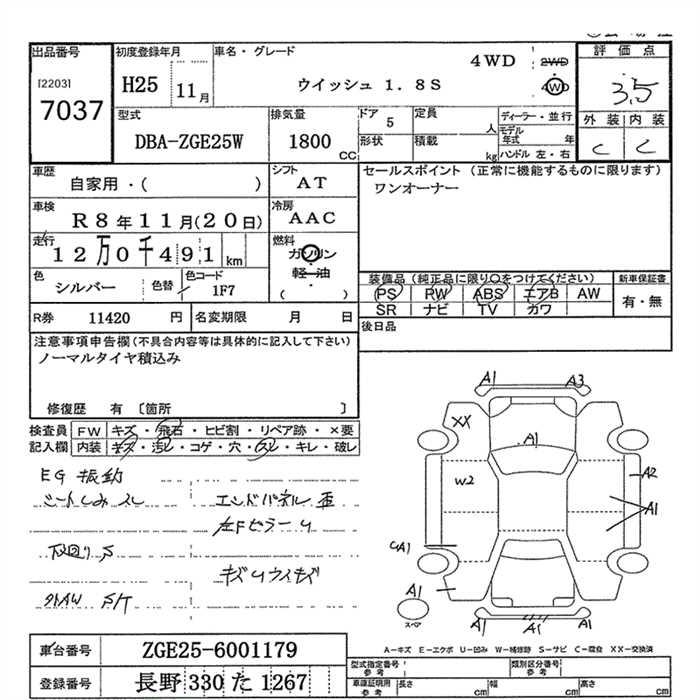 出品番号
[2203]
7037
初度登録年月
H25 11月
車名・グレード
ウイッシュ 1.8S
4WD
2WD
4WD
評価点
3.5
外装 内装
C C
型式
DBA-ZGE25W
排気量
1800 CC
ドア 5
定員 人
形状
積載 kg
ディーラー・並行
モデル年式 年
ハンドル 左・右
車歴
自家用・( )
シフト
AT
車検
R8年11月(20日)
冷房
AAC
走行
12万0千491km
燃料
ガソリン
軽・油
( )
色
シルバー
色替
色コード
1F7
セールスポイント (正常に機能するものに限ります)
ワンオーナー
装備品 (純正品に限り○をつけてください)
新車保証書
PS PW ABS エアB AW
SR ナビ TV カワ
有・無
R券 11420 円
名変期限 月 日
後日品
注意事項申告欄(不具合内容等は具体的に記入して下さい)
ノーマルタイヤ積込み
修復歴 有 〔箇所 〕
検査員記入欄
FW キズ・飛石・ヒビ割・リペア跡・×要
内装 キズ・汚レ・コゲ・穴・スレ・キレ・破レ
EG 振動
シートしみ スレ
エンドパネル 歪
左Fピラー U
下廻り S
キズUウィキズ
外AW S/T
A1
A3
XX
A1
W2
A2
A1
A1
A1
スペア
A1
A1
A1
車台番号
ZGE25-6001179
登録番号
長野 330 た 1267
A-キズ E-エクボ U-凹み W-補修跡 S-サビ C-腐食 XX-交換済
型式指定番号 参考
類別区分番号 参考
車庫証明用 参考
長さ cm
幅 cm
高さ cm